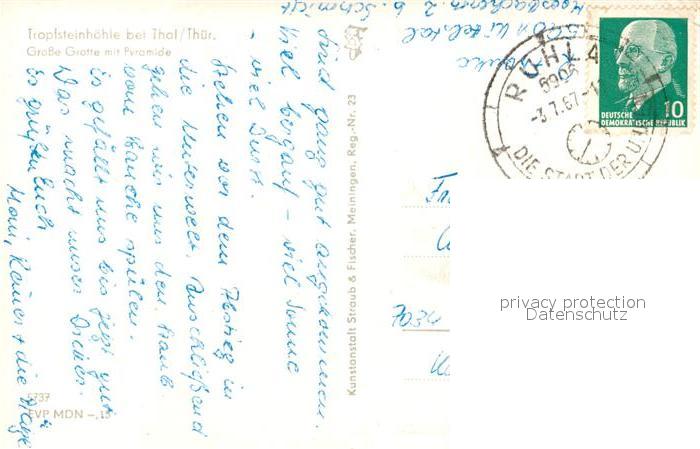 Tropfsteinhöhle bei Thal/Thür.
Große Grotte mit Pyramide
Sind ganz gut angekommen.
Viel bergauf - viel Sonne
- viel Durst.
Stehen vor dem Abstieg in
die Unterwelt. Anschließend
gehen wir uns den Staub
vom Bauche spülen.
Es gefällt uns bis jetzt gut
Was macht unser Dicker.
Es grüßen Euch
Moni, Reiner + die
5737
EVP MDN -,15
Kunstanstalt Straub & Fischer, Meiningen. Reg.-Nr. 23
b. Schmidt
RUHLA
5906
-3.7.67-1
DIE STADT DER U
DEUTSCHE
DEMOKRATISCHE REPUBLIK
10
privacy protection
Datenschutz